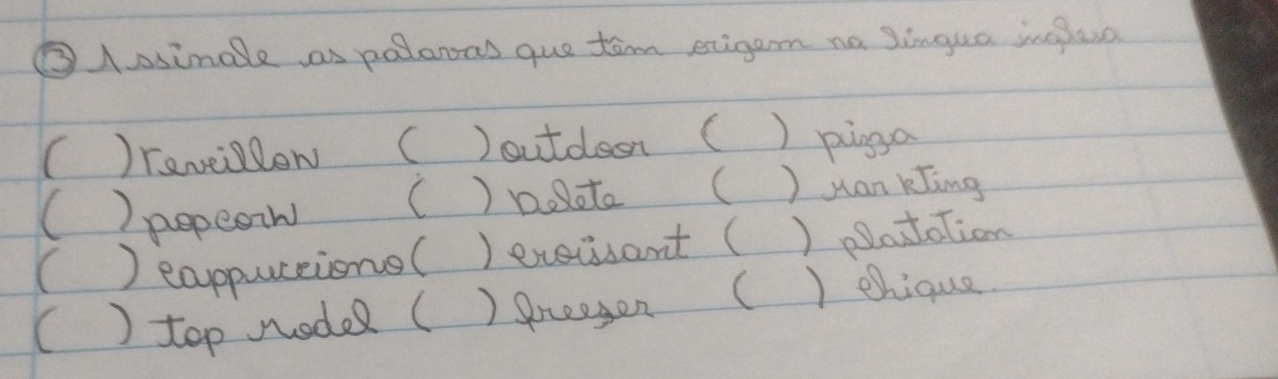 ③ Assinale as palavras que têm origem na língua inglesa
( ) reveillow ( ) outdoor ( ) pizza
( ) popcorw ( ) Delete ( ) Markting
( ) cappucciono ( ) croissant ( ) plastation
( ) top model ( ) freezer ( ) chique.